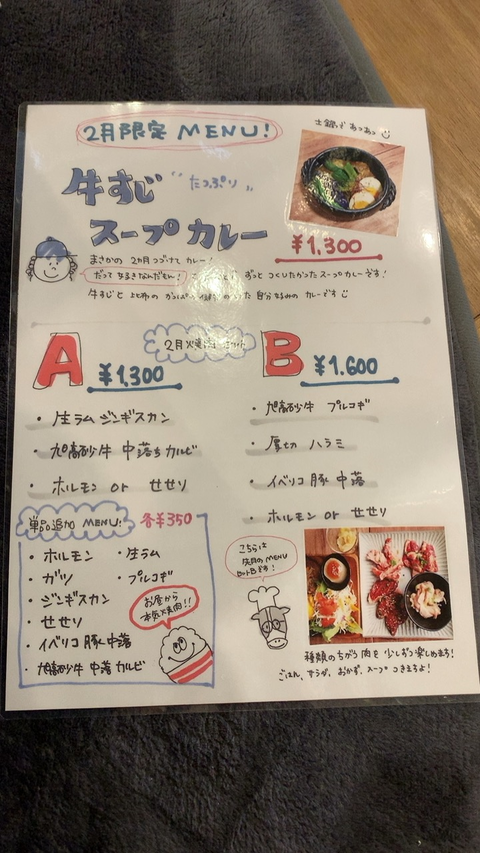 2月限定 MENU!
土鍋で あつあつ
牛すじ "たっぷり"
スープカレー
¥1,300
まさかの 2ヶ月 つづけて カレー!
だって 好きなんだもん! ずっと つくりたかった スープカレーです!
牛すじと 比布の 自分好みの カレーです
2月 焼肉 セット
A ¥1,300
・生ラム ジンギスカン
・旭高砂牛 中落ちカルビ
・ホルモン or せせり
B ¥1,600
・旭高砂牛 プルコギ
・厚切 ハラミ
・イベリコ豚 中落
・ホルモン or せせり
単品追加 MENU! 各¥350
・ホルモン
・ガツ
・ジンギスカン
・せせり
・イベリコ豚 中落
・旭高砂牛 中落 カルビ
・生ラム
・プルコギ
お昼から
本気焼肉!!
こちらは
先月の MENU
Bセットです!
種類のちがう 肉を 少しずつ 楽しめます!
ごはん、サラダ、おかず、スープ つきますよ!